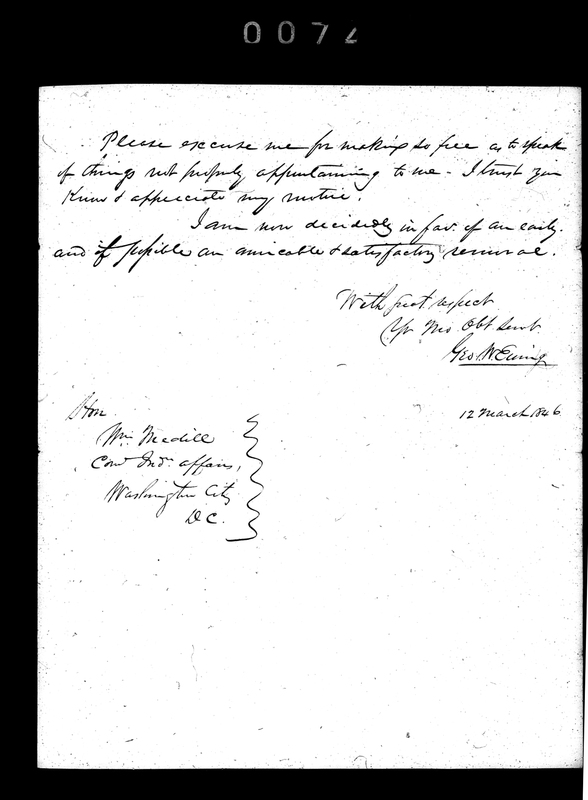 0072
Please excuse me for making so free as to speak
of things not properly appertaining to me - I trust you
Know & appreciate my motive.
I am now decidedly in fav. of an early.
and if possible an amicable & satisfactory removal.
With great respect
Yr Mo Obt Servt
Geo. W. Ewing
12 March 1846
Hon
Wm Medill
Com Indn affairs,
Washington City
D C.